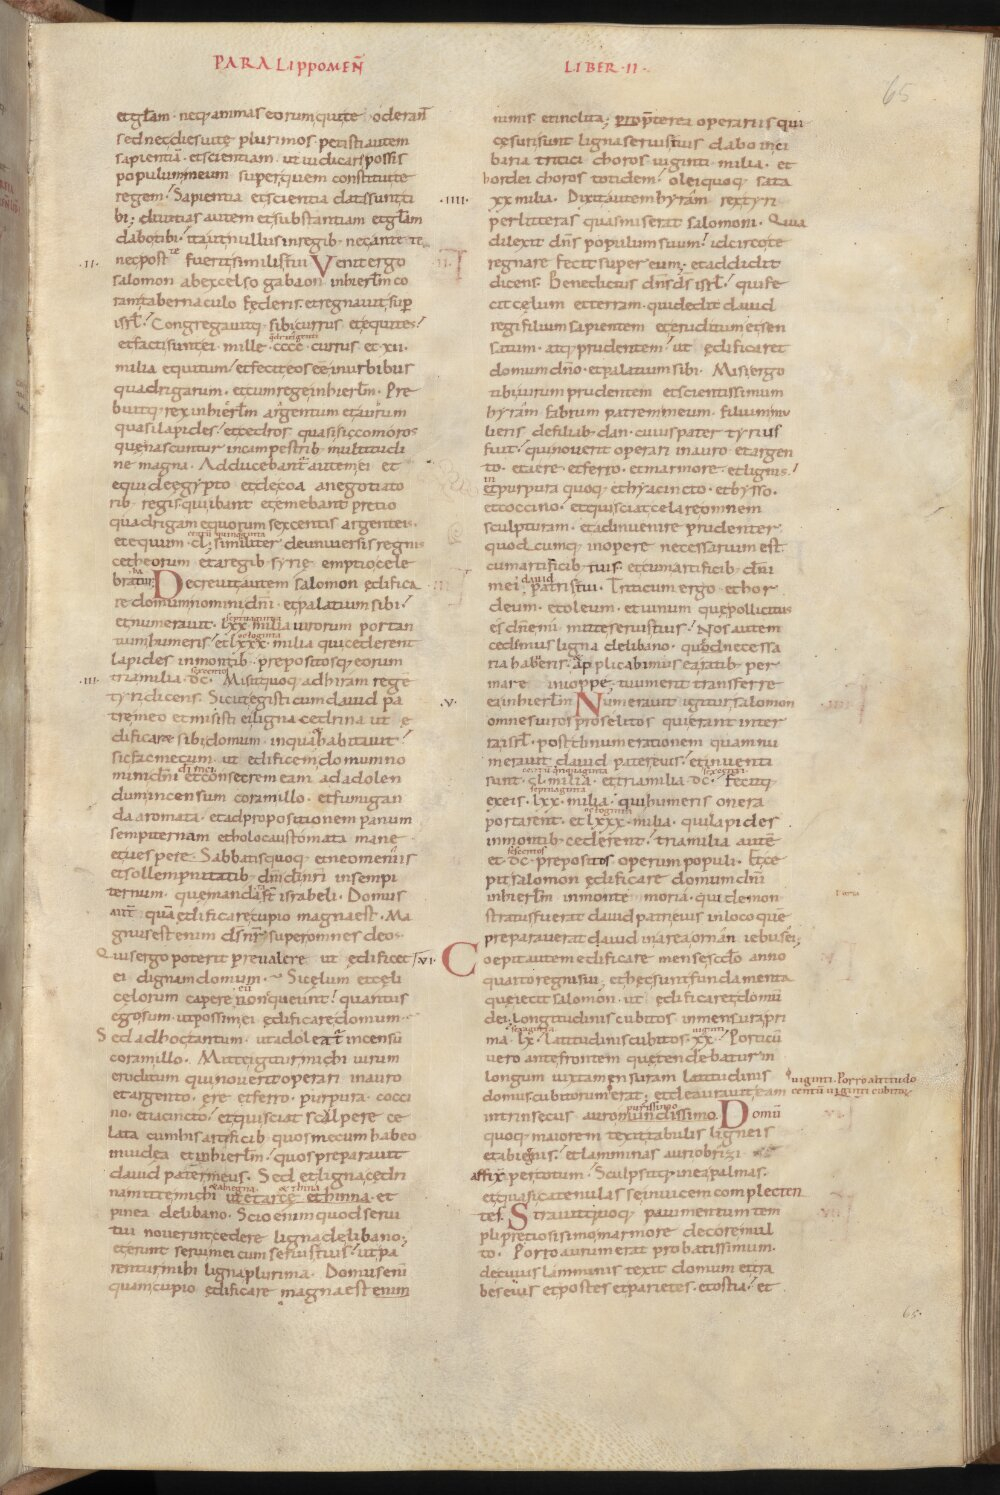 PARALIPPOMEÑ
LIBER · II ·
65
et głam · neq; animas eorum qui te oderant
sed nec dies uitę plurimos · petisti autem
sapientiā · et scientiam · ut iudicare possis
populum meum super quem constitui te
regem · Sapientia et scientia data sunt ti
bi; diuitias autem et substantiam et głam
dabo tibi · ita ut nullus in regib· nec ante te
nec post te fuerit similis tui Venit ergo
· II ·
salomon ab excelso gabaon in hierłm co
ram tabernaculo foederis · et regnauit sup
isrł · Congregauitq; sibi currus et equites ·
et facti sunt ei mille · cccc · currus et xii ·
milia equitum · et fecit eos eē in urbibus
quadrigarum · et cum rege in hierłm · Prę
buitq; rex in hierłm argentum et aurum
quasi lapides · et cedros quasi siccomoros
quę nascuntur in campestrib· multitudi
ne magna · Adducebant̄ autem ei et
equi de ęgypto et de coa a negotiato
rib· regis qui ibant et emebant pretio
quadrigam equorum sexcentis argenteis ·
et equum · cl; similiter de uniuersis regnis
cetheorum et a regib· syrię emptio cele
bratur; Decreuit autem salomon ędifica
re domum nomini dñi · et palatium sibi ·
et numerauit · lxx · milia uirorum portan
tium humeris · et lxxx · milia qui cęderent
lapides in montib· prepositosq; eorum
tria milia · dc · Misit quoq; ad hiram regē
· III ·
tyri dicens · Sicut egisti cum dauid pa
tre meo et misisti ei ligna cedrina ut ę
dificaret sibi domum · in qua & habitauit ·
sic fac mecum ut ędificem domum no
mini dñi dei mei et consecrem eam ad adolen
dum incensum coram illo · et fumigan
da aromata · et ad propositionem panum
sempiternam et holocaustomata mane ·
et uespere · Sabbatis quoq; et neomeniis
et sollempnitatib· dñi dei nri in sempi
ternum · quę mandata st israheli · Domus
aut quā ędificare cupio magna est · Ma
gnus est enim ds nr super omnes deos ·
Quis ergo poterit preualere ut ędificet
ei dignam domum · Si cęlum et cęli
cęlorum capere eū non queunt · quantus
ego sum ut possim ei ędificare domum ·
Sed ad hoc tantum · ut adoleat̄ incensū
coram illo · Mitte igitur michi uirum
eruditum qui nouerit operari in auro
et argento · ęre et ferro · purpura · cocci
no · et iacincto · et qui sciat scalpere ce
lata cum his artificib· quos mecum habeo
in iudea et in hierłm · quos preparauit
dauid pater meus · Sed et ligna cedri
na mitte michi et arce ethinna · et
pinea de libano · Scio enim quod serui
tui nouerint cedere ligna de libano;
et erunt serui mei cum seruis tuis · ut pa
rentur mihi ligna plurima · Domus eni
quam cupio ędificare magna est enim
nimis et inclita; propterea operariis qui
cęsuri sunt ligna seruis tuis dabo in ci
baria tritici choros uiginti milia · et
hordei choros totidem · olei quoq; sata
· IIII ·
xx milia · Dixit autem hyrām rex tyri
per litteras quas miserat salomoni · Quia
dilexit dñs populum suum · idcirco te
regnare fecit super eum; et addidit
dicens · Benedictus dñs ds isrł · qui fe
cit cęlum et terram · qui dedit dauid
regi filium sapientem et eruditum et sen
satum · atq; prudentem · ut ędificaret
domum dño · et palatium sibi · Misi ergo
tibi uirum prudentem et scientissimum
hyrām fabrum patrem meum · filium mu
lieris de filiab· dan · cuius pater tyrius
fuit · qui nouerit operari in auro et argen
to · et aere · et ferro · et marmore · et lignis ·
et in purpura quoq; et hyacincto · et bysso ·
et coccino · et qui sciat cęlare omnem
sculpturam · et adinuenire prudenter
quodcumq; in opere necessarium est
cum artificib· tuis · et cum artificib· dñi
mei dauid patris tui · Triticum ergo et hor
deum · et oleum · et uinum quę pollicitus
es dñe mi mitte seruis tuis · Nos autem
cedimus ligna de libano · quod necessa
ria habueris · applicabimus ea ratib· per
mare in ioppe; tuum erit transferre
· V ·
ea in hierłm Numerauit igitur salomon
omnes uiros proselitos qui erant in ter
ra isrł · post dinumerationem quam nu
merauit dauid pater eius · et inuenti
sunt · cl · milia · et tria milia dc · Fecitq;
ex eis · lxx · milia · qui humeris onera
portarent · et lxxx · milia · qui lapides
in montib· cederent · tria milia autē
et dc · prepositos operum populi · Et cę
pit salomon ędificare domum dñi
in hierłm in monte moria · qui demon
stratus fuerat dauid patri eius in loco quē
preparauerat dauid in area ornān iebusei;
· VI ·
Coepit autem edificare mense scdo anno
quarto regni sui; et hęc sunt fundamenta
quę iecit salomon · ut ędificaret domū
dei; longitudinis cubitos in mensura pri
ma · lx · latitudinis cubitos · xx · Porticū
uero ante frontem quę tendebatur in
longum iuxta mensuram latitudinis
domus cubitorum erat; et deaurauit eam
uiginti · Porro altitudo
centū uiginti cubitorū
intrinsecus auro mundissimo · Domū
quoq; maiorem texit tabulis ligneis
et abiegnis · et lamminas auri obrizi
affix per totum · Sculpsitq; in ea palmas ·
et quasi catenulas se inuicem complecten
tes · Strauit quoq; pauimentum tem
pli pretiosissimo marmore decore mul
to · Porro aurum erat probatissimum ·
de cuius lamminis texit domum et tra
bes eius et postes et parietes · et ostia · et
65